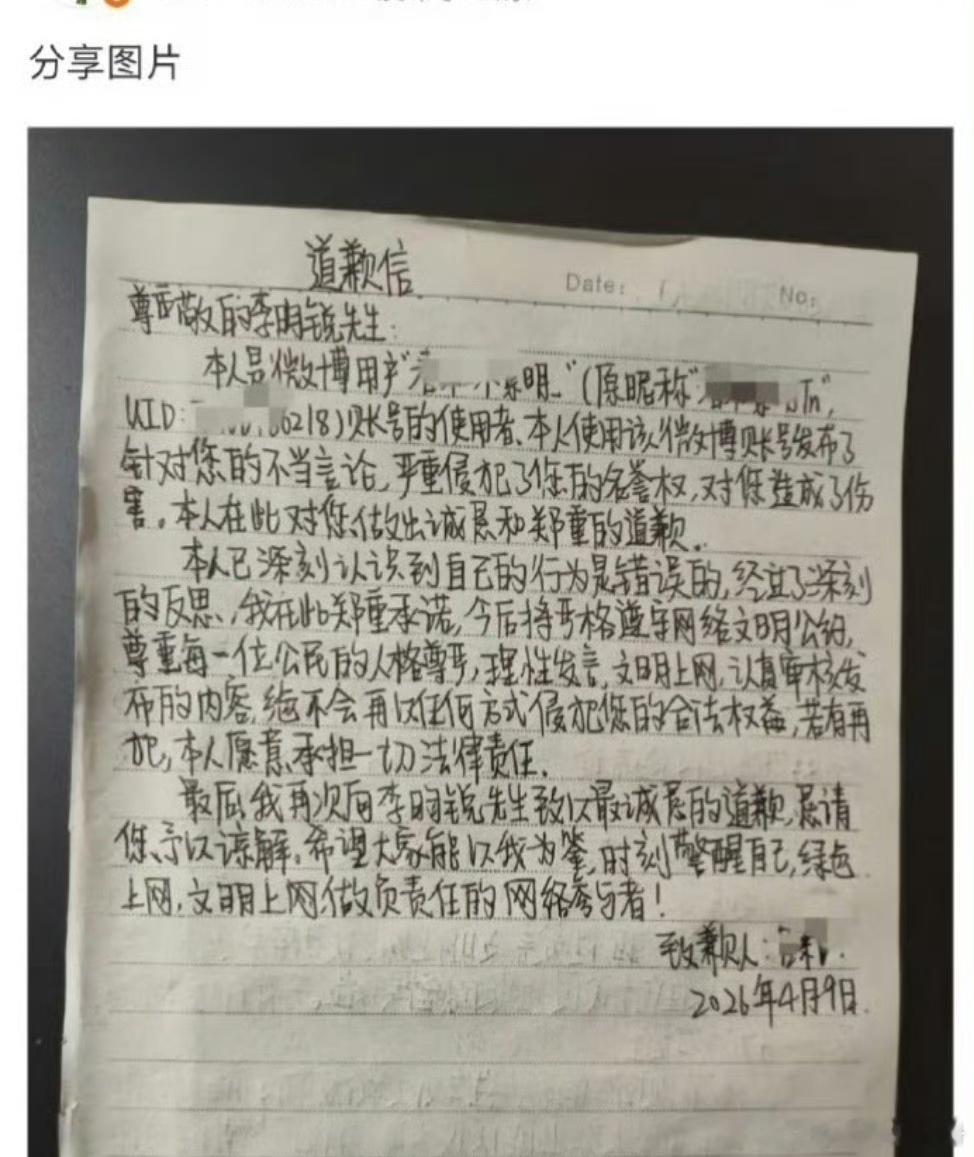 分享图片
道歉信
Date:
No:
尊敬的李昀锐先生:
本人是微博用户" 明."(原昵称" ",
UID: 6218)账号的使用者、本人使用该微博账号发布了
针对您的不当言论,严重侵犯了您的名誉权,对您造成了伤
害。本人在此对您做出诚恳和郑重的道歉.
本人已深刻认识到自己的行为是错误的,经过了深刻
的反思,我在此郑重承诺,今后将严格遵守网络文明公约,
尊重每一位公民的人格尊严,理性发言,文明上网,认真审核发
布的内容,绝不会再以任何方式侵犯您的合法权益,若有再
犯,本人愿意承担一切法律责任.
最后,我再次向李昀锐先生致以最诚恳的道歉,恳请
您予以谅解。希望大家能以我为鉴,时刻警醒自己,绿色
上网,文明上网,做负责任的网络参与者!
致歉人:
2026年4月9日.